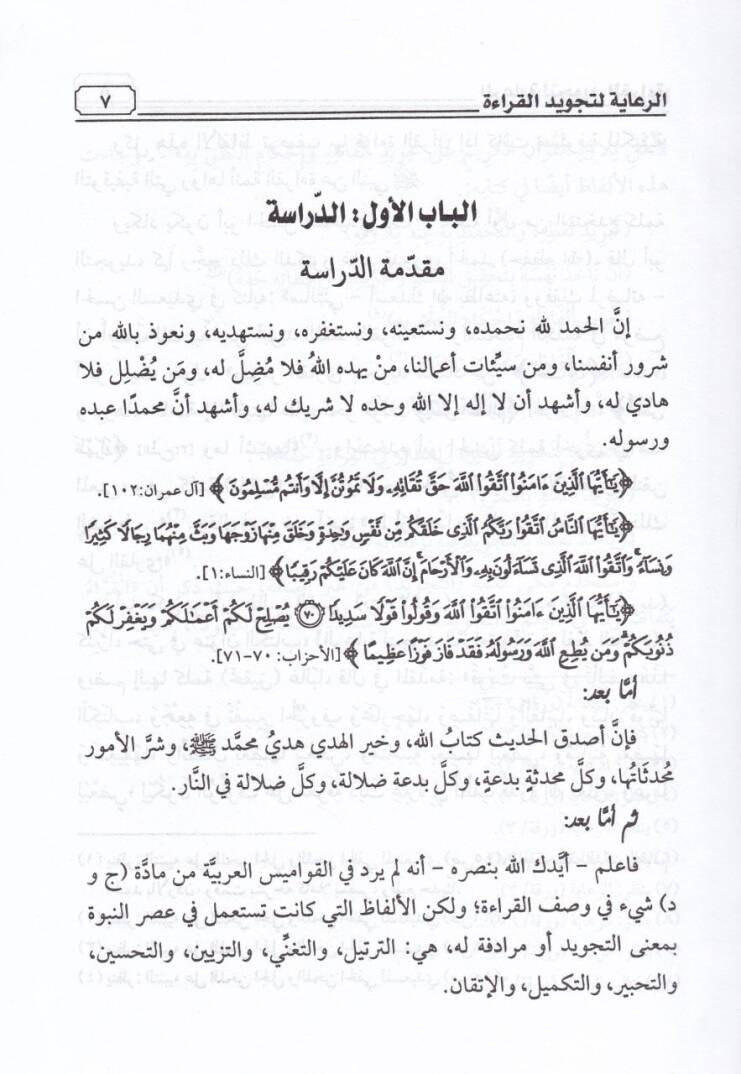 الرعاية لتجويد القراءة
٧
الباب الأول: الدّراسة
مقدّمة الدّراسة
إنَّ الحمد لله نحمده، ونستعينه، ونستغفره، ونستهديه، ونعوذ بالله من
شرور أنفسنا، ومن سيِّئات أعمالنا، منْ يهده اللهُ فلا مُضِلَّ له، ومَن يُضْلِل فلا
هادي له، وأشهد أن لا إله إلا الله وحده لا شريك له، وأشهد أنَّ محمدًا عبده
ورسوله.
﴿يَٰٓأَيُّهَا ٱلَّذِينَ ءَامَنُوا۟ ٱتَّقُوا۟ ٱللَّهَ حَقَّ تُقَاتِهِۦ وَلَا تَمُوتُنَّ إِلَّا وَأَنتُم مُّسْلِمُونَ﴾ [آل عمران:١٠٢].
﴿يَٰٓأَيُّهَا ٱلنَّاسُ ٱتَّقُوا۟ رَبَّكُمُ ٱلَّذِى خَلَقَكُم مِّن نَّفْسٍ وَٰحِدَةٍ وَخَلَقَ مِنْهَا زَوْجَهَا وَبَثَّ مِنْهُمَا رِجَالًا كَثِيرًا
وَنِسَآءً ۚ وَٱتَّقُوا۟ ٱللَّهَ ٱلَّذِى تَسَآءَلُونَ بِهِۦ وَٱلْأَرْحَامَ ۚ إِنَّ ٱللَّهَ كَانَ عَلَيْكُمْ رَقِيبًا﴾ [النساء:١].
﴿يَٰٓأَيُّهَا ٱلَّذِينَ ءَامَنُوا۟ ٱتَّقُوا۟ ٱللَّهَ وَقُولُوا۟ قَوْلًا سَدِيدًا ۝٧٠ يُصْلِحْ لَكُمْ أَعْمَٰلَكُمْ وَيَغْفِرْ لَكُمْ
ذُنُوبَكُمْ ۗ وَمَن يُطِعِ ٱللَّهَ وَرَسُولَهُۥ فَقَدْ فَازَ فَوْزًا عَظِيمًا﴾ [الأحزاب: ٧٠-٧١].
أمّا بعد:
فإنَّ أصدق الحديث كتابُ الله، وخير الهدي هديُ محمَّد ﷺ، وشرَّ الأمور
مُحدثاتُها، وكلَّ محدثةٍ بدعةٍ، وكلَّ بدعة ضلالة، وكلَّ ضلالة في النَّار.
ثم أمّا بعد:
فاعلم – أيَّدك الله بنصره – أنه لم يرد في القواميس العربيَّة من مادَّة (ج و
د) شيء في وصف القراءة؛ ولكن الألفاظ التي كانت تستعمل في عصر النبوة
بمعنى التجويد أو مرادفة له، هي: الترتيل، والتغنِّي، والتزيين، والتحسين،
والتحبير، والتكميل، والإتقان.